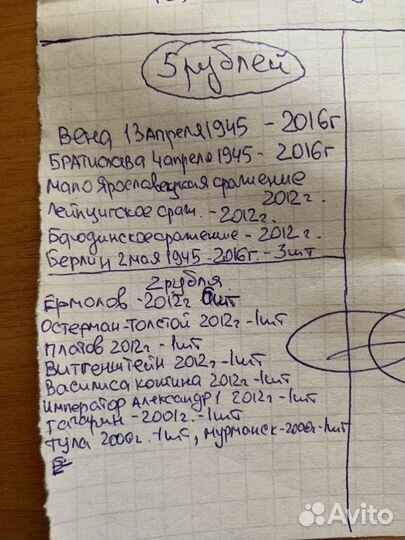 5 рублей
Вена 13 Апреля 1945 - 2016г
БРАТИслава 4 апреля 1945 - 2016г
Мало Ярославецкая сражение
2012г.
Лейпцигское сраж. - 2012г.
Бородинское сражение - 2012г.
Берлин 2 мая 1945 - 2016г. - 3шт
2 рубля
Ермолов - 2012г шт
Остерман-Толстой 2012г - 1шт
Платов 2012г - 1шт
Витгенштейн 2012г - 1шт
Василиса Кожина 2012г - 1шт
Император Александр 1 2012г - 1шт
Гагарин - 2001г. - 1шт
Тула 2000г. - 1шт, Мурманск - 2000г - 1шт
Avito